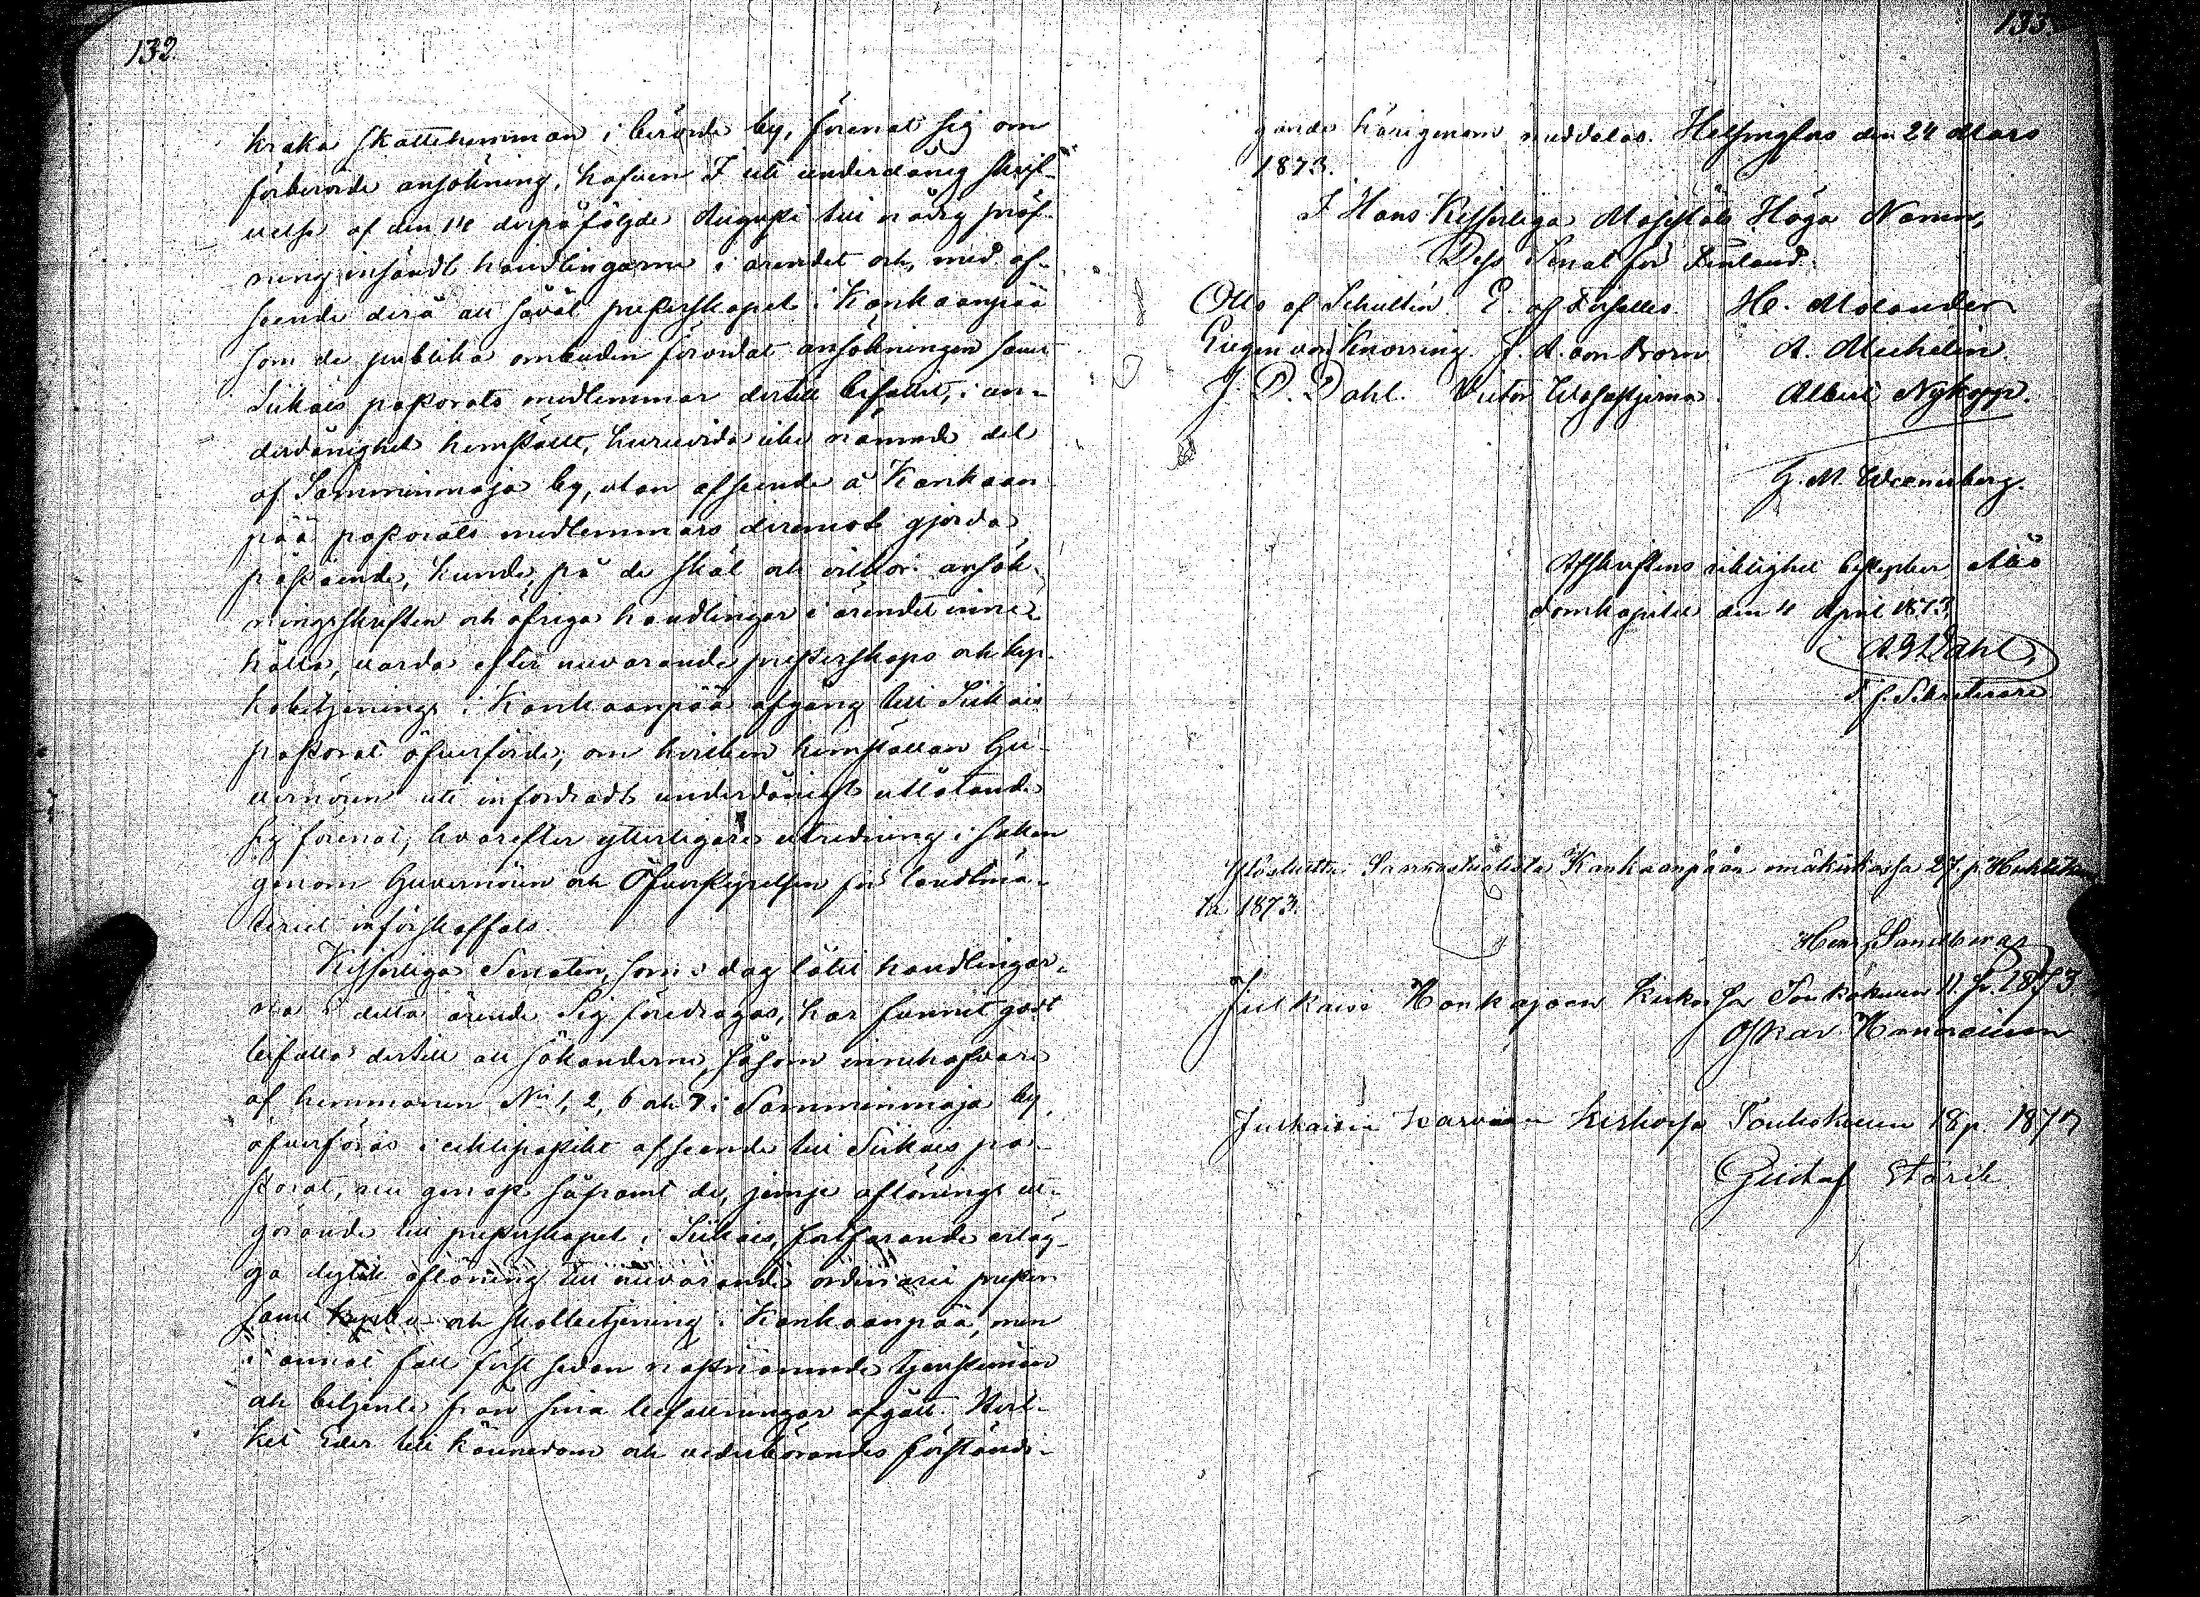 132.
kraka skattehemman i berörde by, förenat sig om
förberörde ansökning, hafven I uti underdånig skrif-
velse af den 14 derpåföljde Augusti till nådig pröf-
ning insändt handlingarne i ärendet och, med af-
seende derå att såväl presterskapet i Kankaanpää
som de publika ombuden förordat ansökningen samt
Siikais pastorats medlemmar dertill bifallit, i un-
derdånighet hemställt, huruvida icke nämnde del
af Samminmaja by, utan afseende å Kankaan-
pää pastorats medlemmars deremot gjorda
påstående, kunde, på de skäl och vilkor ansök-
ningsskriften och öfriga handlingar i ärendet inne-
hålla, varda efter nuvarande presterskaps och kyr-
kobetjenings i Kankaanpää afgång till Siikais
pastorat öfverförde; om hvilken hemställan Gu-
vernören uti infordradt underdånigt utlåtande
sig förenat; hvarefter ytterligare utredning i saken
genom Guvernören och Öfverstyrelsen för landtmä-
teriet införskaffats.
Kejserliga Senaten, som i dag låtit handlingar-
na i detta ärende Sig föredragas, har funnit godt
bifalla dertill att sökanderne, såsom innehafvare
af hemmanen No 1, 2, 6 och 7 i Samminmaja by,
öfverföras i ecklesiastikt afseende till Siikais pa-
storat, nu genast såframt de, jemte aflönings ut-
görande till presterskapet i Siikais, fortfarande erläg-
ga dylik aflöning till nuvarande ordinarie prester
samt kyrko- och skolbetjening i Kankaanpää, men
i annat fall först sedan nästnämnde tjenstemän
och betjente från sina befattningar afgått. Hvil-
ket Eder till kännedom och vederbörandes förständi-
133.
gande härigenom meddelas. Helsingfors den 24 Mars
1873.
I Hans Kejserliga Majestäts Höga Namn,
Dess Senat för Finland.
Otto af Schultén. E. af Forselles. H. Molander
Eugen von Knorring. J. A. von Born A. Mechelin.
J. D. Dahl. Victor Albert Nykopp.
G. M. Wænerberg.
Afskriftens riktighet bestyrker, Åbo
domkapitel den 4 April 1873,
Dahl,
t. f. Sekreterare
Kankaanpään emäkirkossa 27. p. Huhtikuu-
ta 1873.
Sandberg
Julkaisi Honkajoen kirkossa Toukokuun 11. p. 1873
Oskar
Julkaisi Karvian kirkossa Toukokuun 18 p. 1873
Gustaf